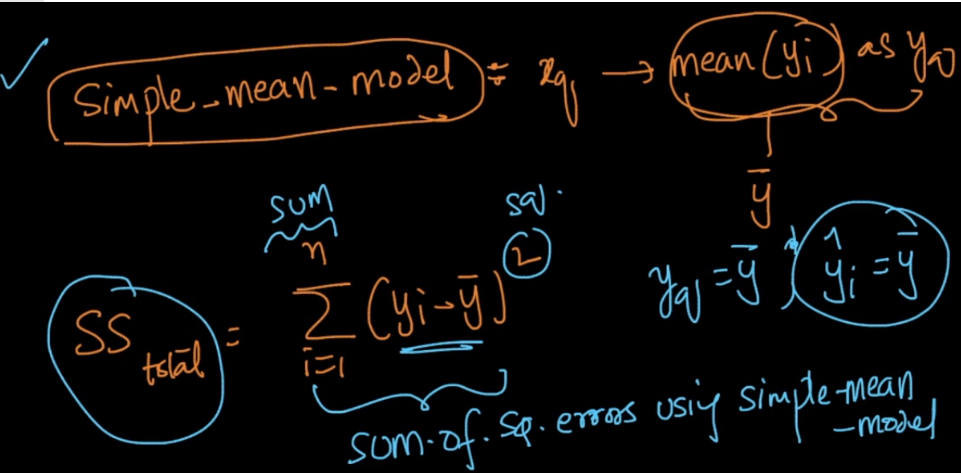 Simple-mean-model : x_q → mean(yi) as y_q
ȳ
sum sq.
SS_total = n ∑ i=1 (yi-ȳ)²
y_q = ȳ, ŷi = ȳ
sum-of-sq. errors using simple-mean
-model